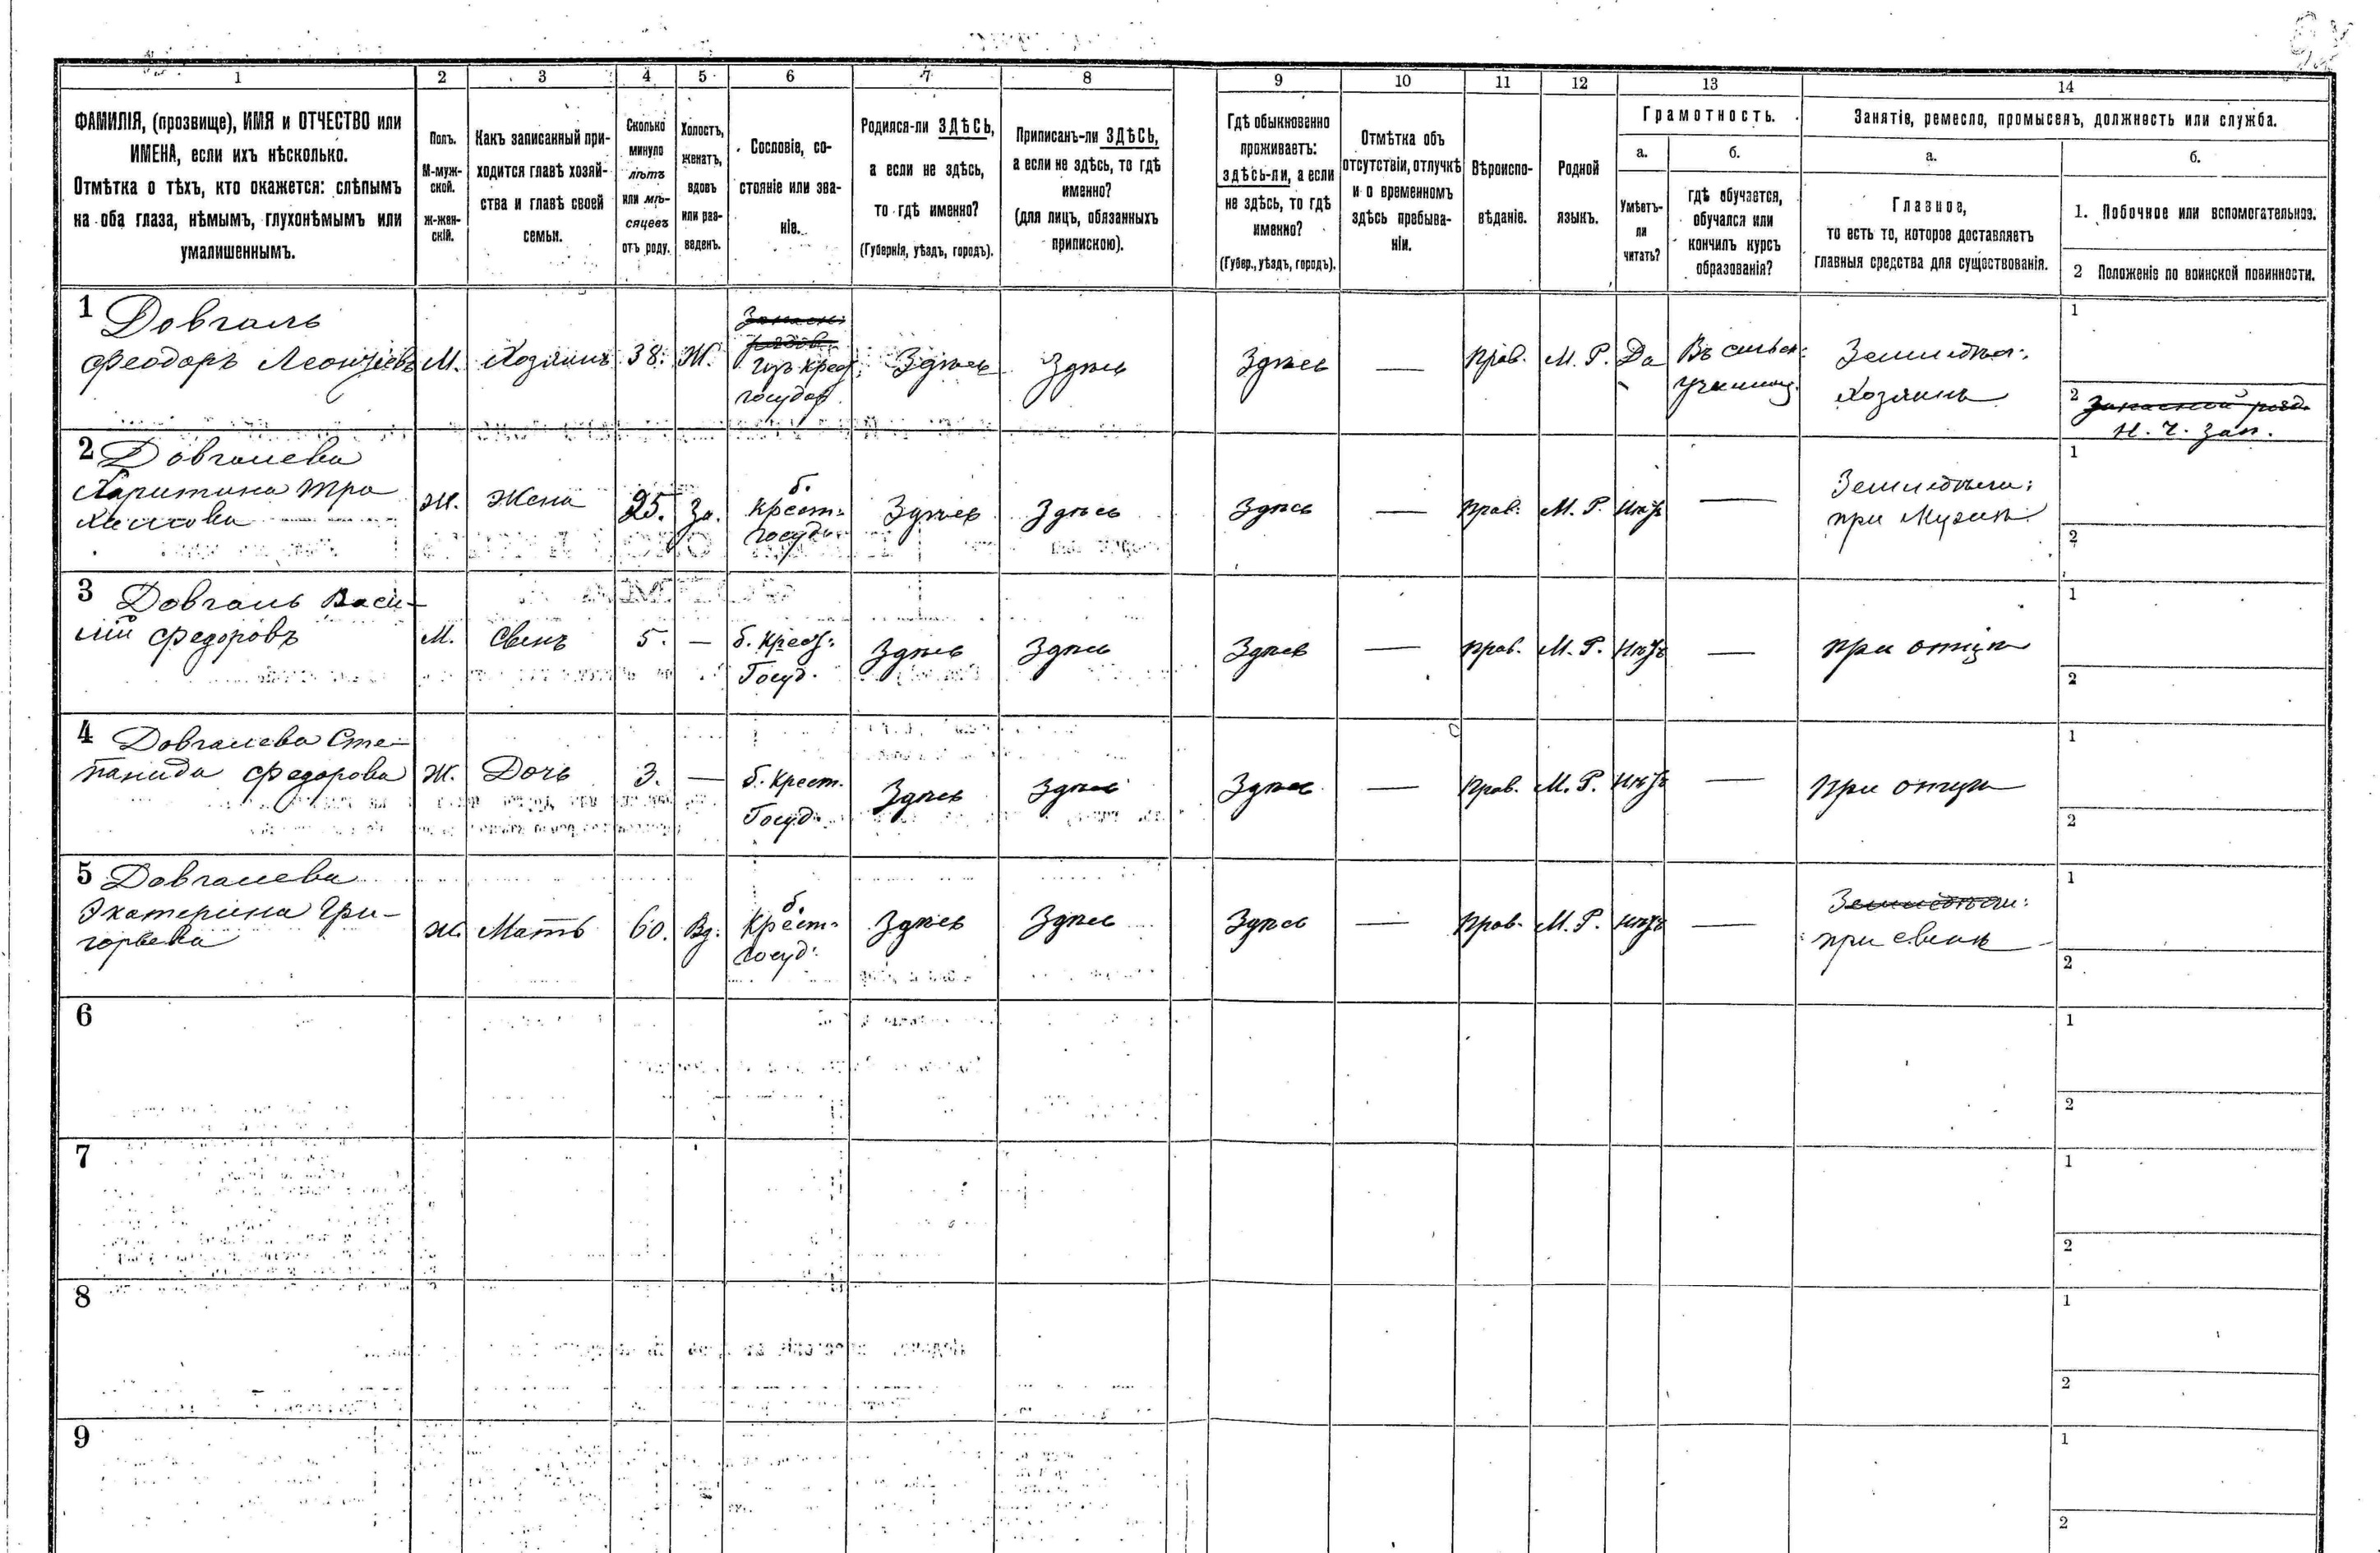 1 2 3 4 5 6 7 8 9 10 11 12 13 14
ФАМИЛІЯ, (прозвище), ИМЯ и ОТЧЕСТВО или
ИМЕНА, если ихъ нѣсколько.
Отмѣтка о тѣхъ, кто окажется: слѣпымъ
на оба глаза, нѣмымъ, глухонѣмымъ или
умалишеннымъ.
Полъ.
М-муж-
ской.
ж-жен-
скій.
Какъ записанный при-
ходится главѣ хозяй-
ства и главѣ своей
семьи.
Сколько
минуло
лѣтъ
или мѣ-
сяцевъ
отъ роду.
Холостъ,
женатъ,
вдовъ
или раз-
веденъ.
Сословіе, со-
стояніе или зва-
ніе.
Родился-ли ЗДѢСЬ,
а если не здѣсь,
то гдѣ именно?
(Губернія, уѣздъ, городъ).
Приписанъ-ли ЗДѢСЬ,
а если не здѣсь, то гдѣ
именно?
(для лицъ, обязанныхъ
припискою).
Гдѣ обыкновенно
проживаетъ:
здѣсь-ли, а если
не здѣсь, то гдѣ
именно?
(Губер., уѣздъ, городъ).
Отмѣтка объ
отсутствіи, отлучкѣ
и о временномъ
здѣсь пребыва-
ніи.
Вѣроиспо-
вѣданіе.
Родной
языкъ.
Грамотность.
а.
Умѣетъ-
ли
читать?
б.
гдѣ обучается,
обучался или
кончилъ курсъ
образованія?
Занятіе, ремесло, промыселъ, должность или служба.
а.
Главное,
то есть то, которое доставляетъ
главныя средства для существованія.
б.
1. Побочное или вспомогательное.
2 Положеніе по воинской повинности.
1 Довгаль
Феодоръ Леонтіевъ
М.
Хозяинъ
38.
Ж.
Запасн:
рядов.
государ
Здѣсь
Здѣсь
Здѣсь
—
Прав.
М. Р.
Да
Въ сельск:
училищ.
Земледѣл:
Хозяинъ
1
2 Запасной ряд.
Н. Ч. Зап.
2 Довгалева
Харитина Тро
химова
Ж.
Жена
25.
За.
б.
Крест:
Госуд:
Здѣсь
Здѣсь
Здѣсь
—
Прав.
М. Р.
Нѣтъ
—
Земледѣлі:
при Мужѣ
1
2
3 Довгаль Васи-
лій Федоровъ
М.
Сынъ
5.
—
б. Крест:
Госуд.
Здѣсь
Здѣсь
Здѣсь
—
Прав.
М. Р.
Нѣтъ
—
при отцѣ
1
2
4 Довгалева Сте-
панида Федорова
Ж.
Дочь
3.
—
б. Крест.
Госуд:
Здѣсь
Здѣсь
Здѣсь
—
Прав.
М. Р.
Нѣтъ
—
При отцѣ
1
2
5 Довгалева
Экатерина Гри-
горьева
Ж.
Мать
60.
Вд.
б.
Крест:
Госуд:
Здѣсь
Здѣсь
Здѣсь
—
Прав.
М. Р.
Нѣтъ
—
Земледѣлі:
при сынѣ
1
2
6
1
2
7
1
2
8
1
2
9
1
2